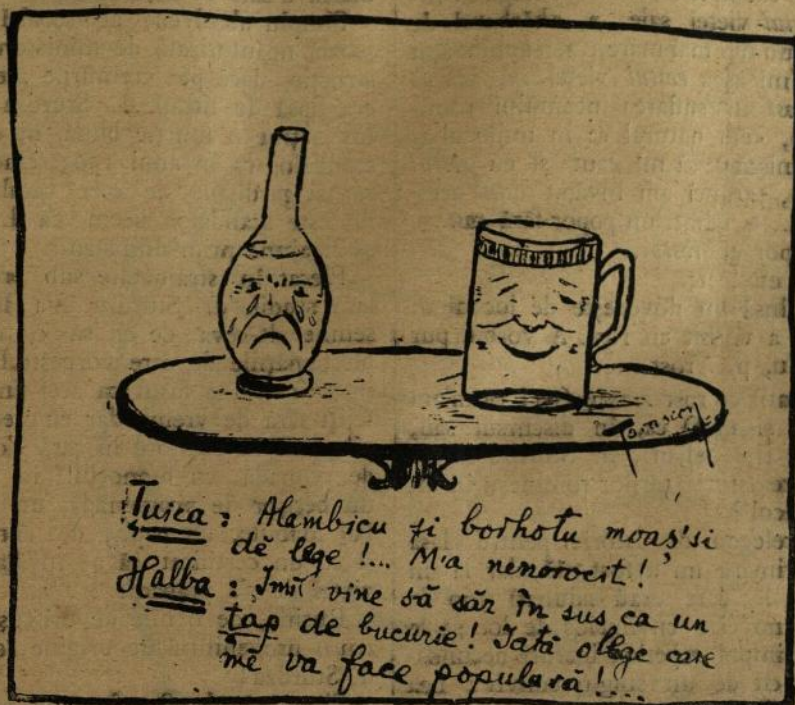 Țuica: Alambicu și borhotu moaș'si
dĕ lege!... M'a nenorocit!
Halba: Imĭ vine să săr in sus ca un
țap de bucurie! Iată o lege care
mĕ va face populară!...